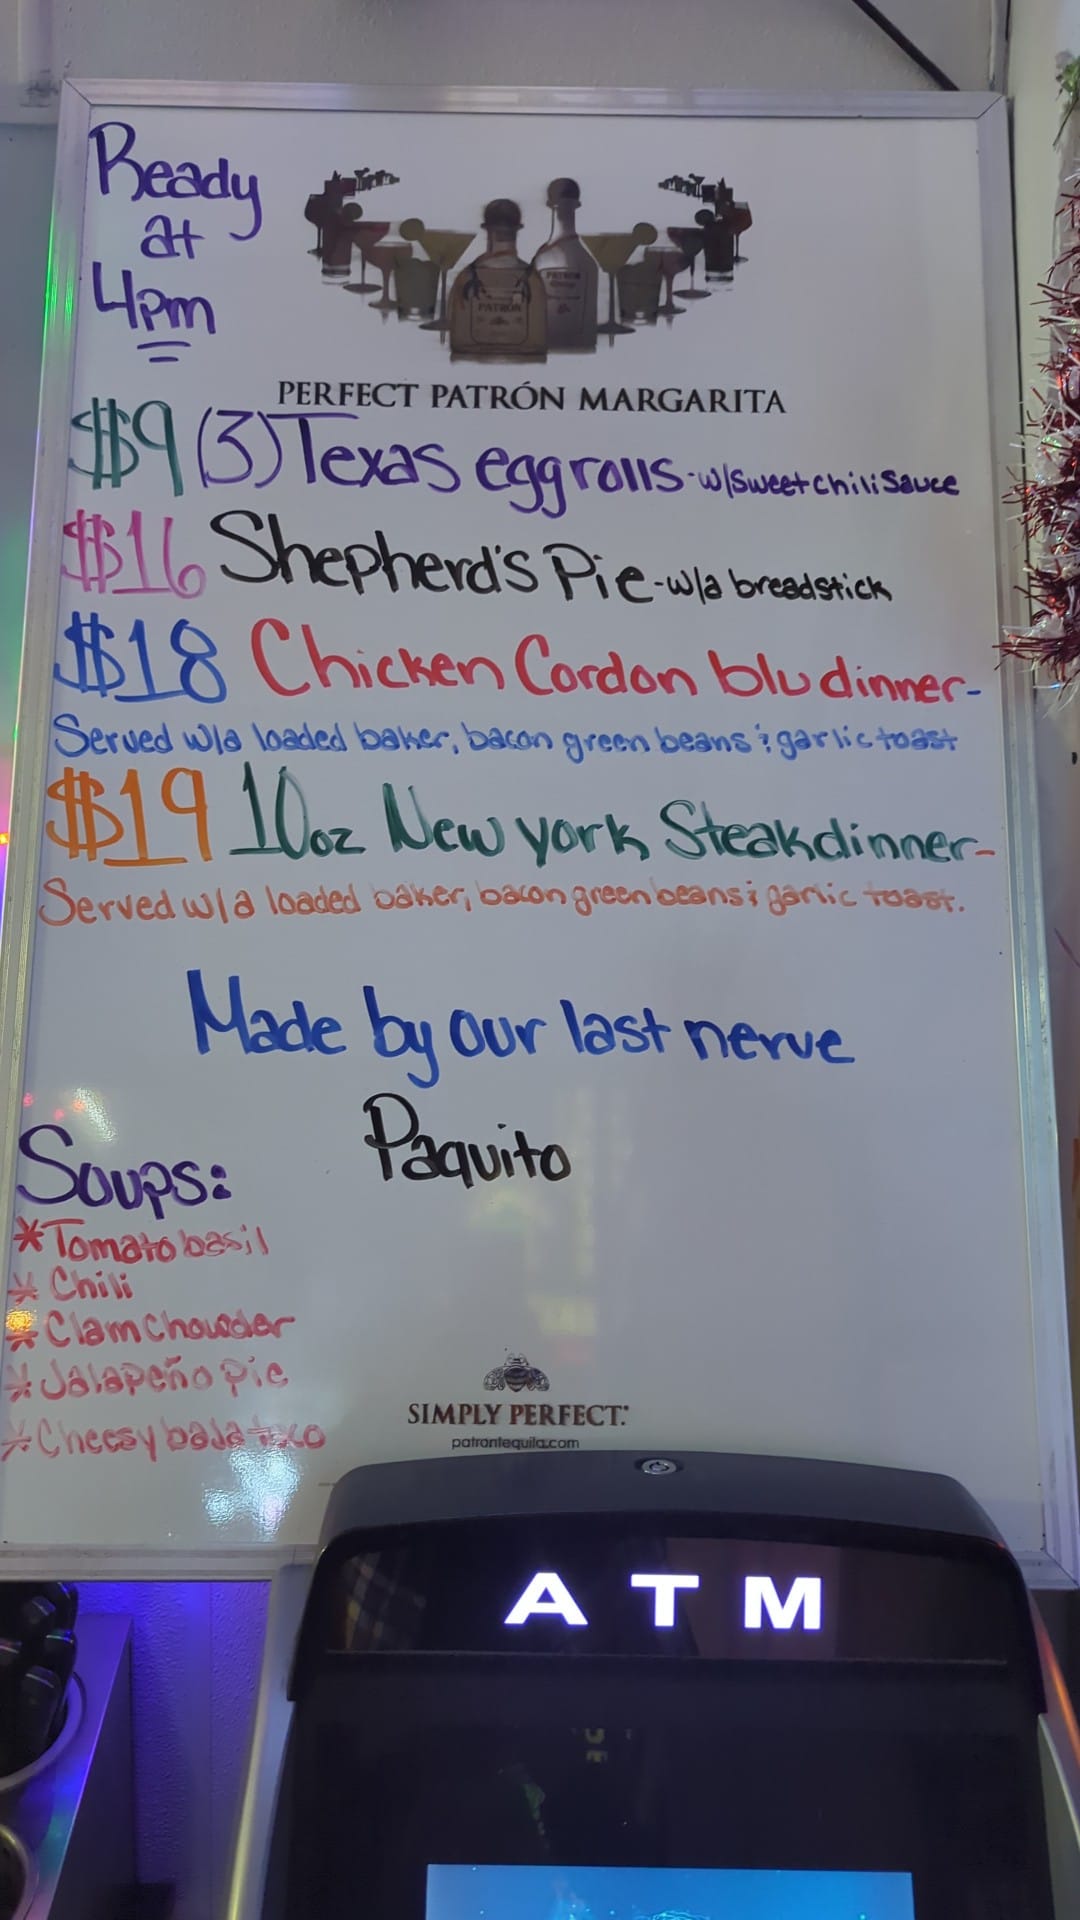 Ready
at
4pm
PATRÓN
PATRÓN
PERFECT PATRÓN MARGARITA
$9 (3) Texas eggrolls - w/sweet chili sauce
$16 Shepherd's Pie - w/a breadstick
$18 Chicken Cordon blu dinner -
Served w/a loaded baker, bacon green beans & garlic toast
$19 10oz New york Steak dinner -
Served w/a loaded baker, bacon green beans & garlic toast.
Made by our last nerve
Paquito
Soups:
* Tomato basil
* Chili
* Clam Chowder
* Jalapeño pie
* Cheesy baja taco
SIMPLY PERFECT.
patrontequila.com
ATM